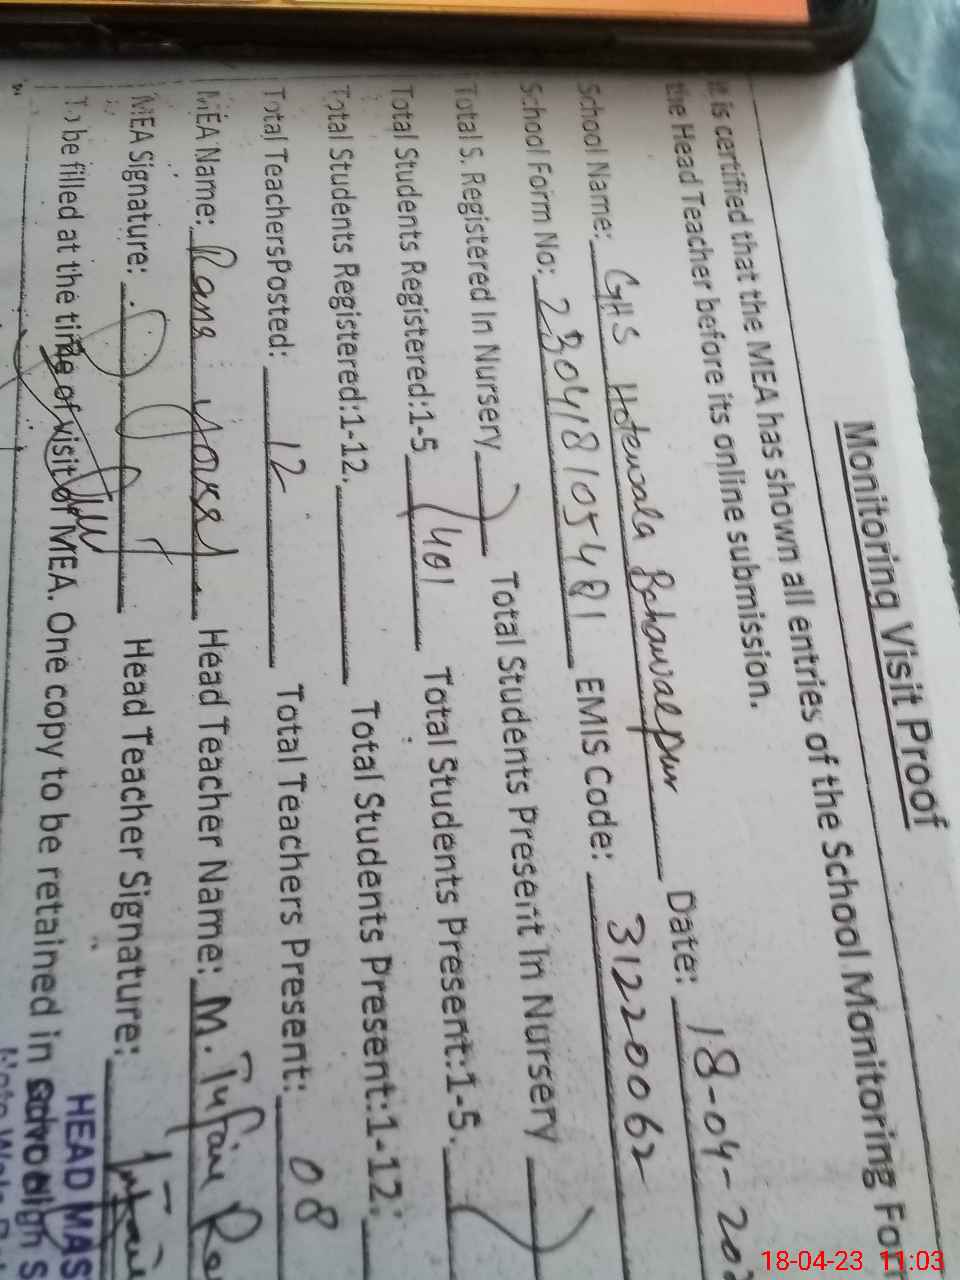 Monitoring Visit Proof
It is certified that the MEA has shown all entries of the School Monitoring For
the Head Teacher before its online submission.
School Name: GHS Hotewala Bahawalpur Date: 18-04-202
School Form No: 2304181054 EMIS Code: 31220062
Total S. Registered In Nursery Total Students Present In Nursery
Total Students Registered:1-5 401 Total Students Present:1-5.
Total Students Registered:1-12. Total Students Present:1-12.
Total TeachersPosted: 12 Total Teachers Present: 08
MEA Name: Rana Head Teacher Name: M. Tufail
MEA Signature: Head Teacher Signature:
To be filled at the time of visit of MEA. One copy to be retained in school
HEAD MAS
18-04-23 11:03